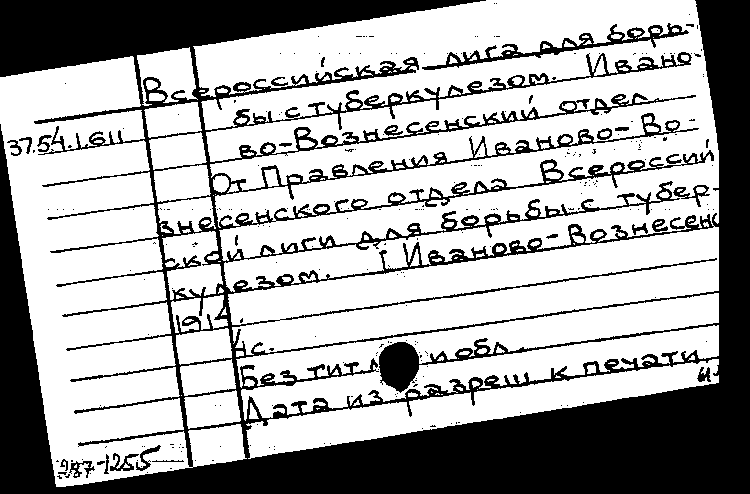 Всероссийская лига для борь-
бы с туберкулезом. Ивано-
во-Вознесенский отдел.
37.54.1.611
От Правления Иваново-Во-
знесенского отдела Всероссий
ской лиги для борьбы с тубер-
кулезом. [Иваново-Вознесенс
1914.
4с.
Без тит. л. и обл.
Дата из разреш к печати.
287-1255